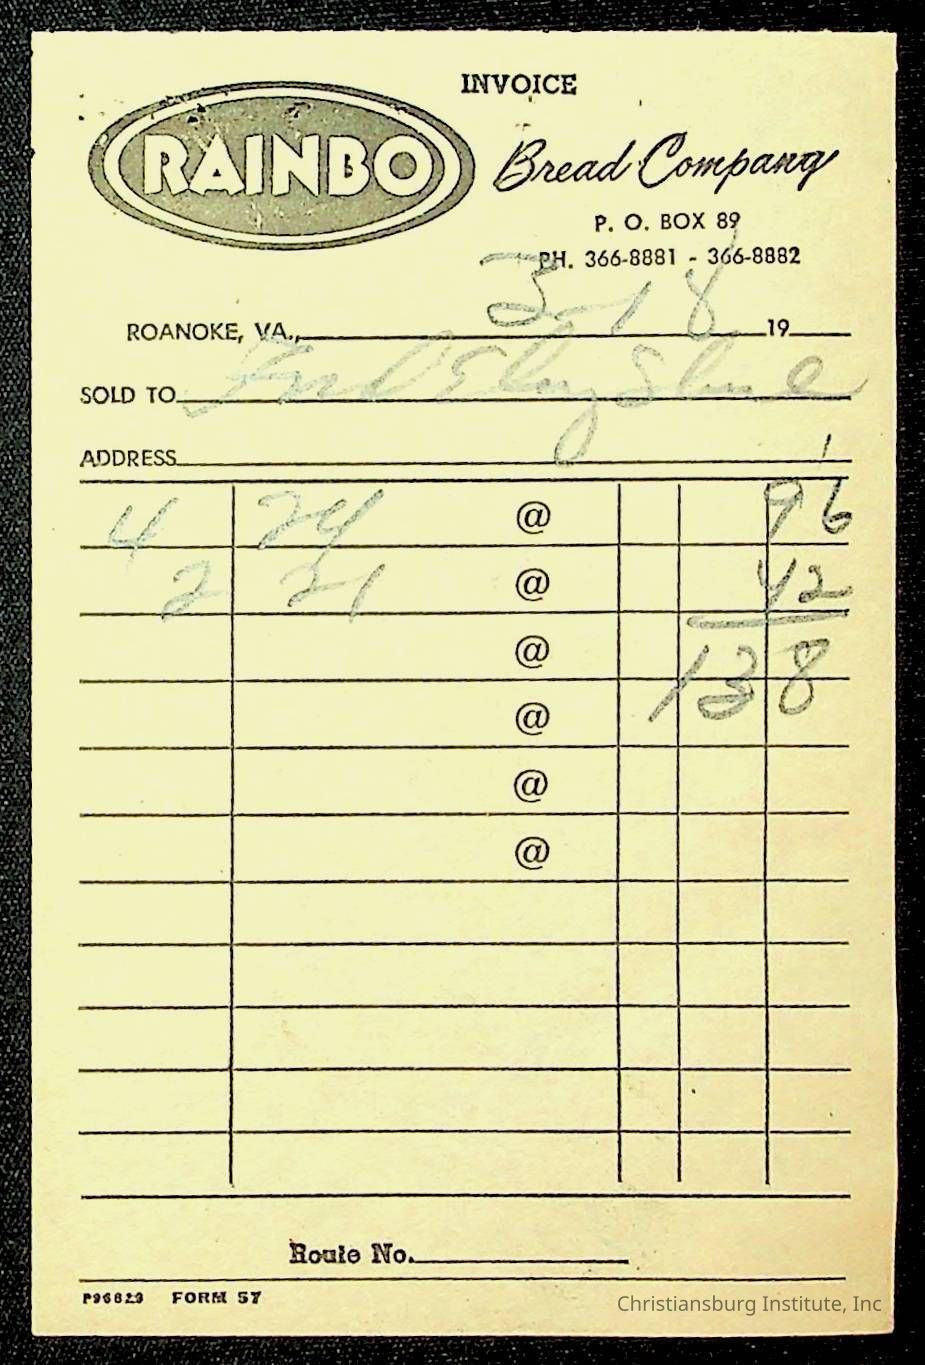 INVOICE
RAINBO Bread Company
P. O. BOX 89
PH. 366-8881 - 366-8882
ROANOKE, VA., 3-18 19
SOLD TO
ADDRESS
4 24 @ 96
2 21 @ 42
@ 138
@
@
@
Route No.
P96823 FORM 57
Christiansburg Institute, Inc